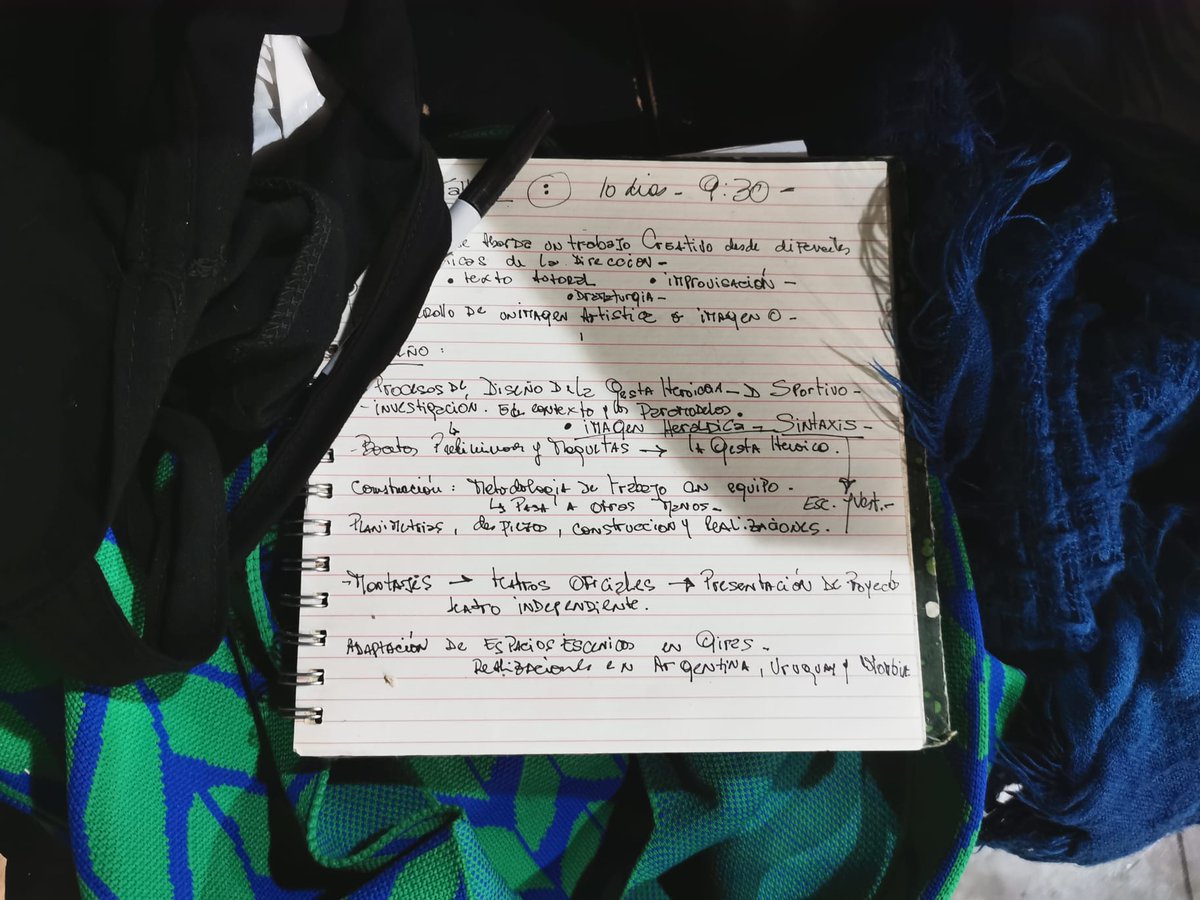 10 dias - 9:30 -
Aborda un trabajo Creativo desde diferentes
de la Direccion -
• texto Autoral • improvisación -
• Dramaturgia -
DE un imagen Artistica o imagen O -
:
- Procesos de Diseño de la Gesta Heroica → Sportivo -
- investigacion. El contexto y los Paramodelos.
• imagen Heraldica - Sintaxis -
- Bocetos Preliminares y Maquetas → la Gesta Heroica.
Construcción: Metodologia de trabajo en equipo -
↳ Pasa a otras Manos - Esc. y Vest. -
Planimetrias, despiezo, construccion y Realizaciones.
- Montajes → teatros oficiales → Presentación de Proyecto
teatro independiente.
Adaptación de Espacios Escenicos en Giras -
Realizaciones en Argentina, Uruguay y